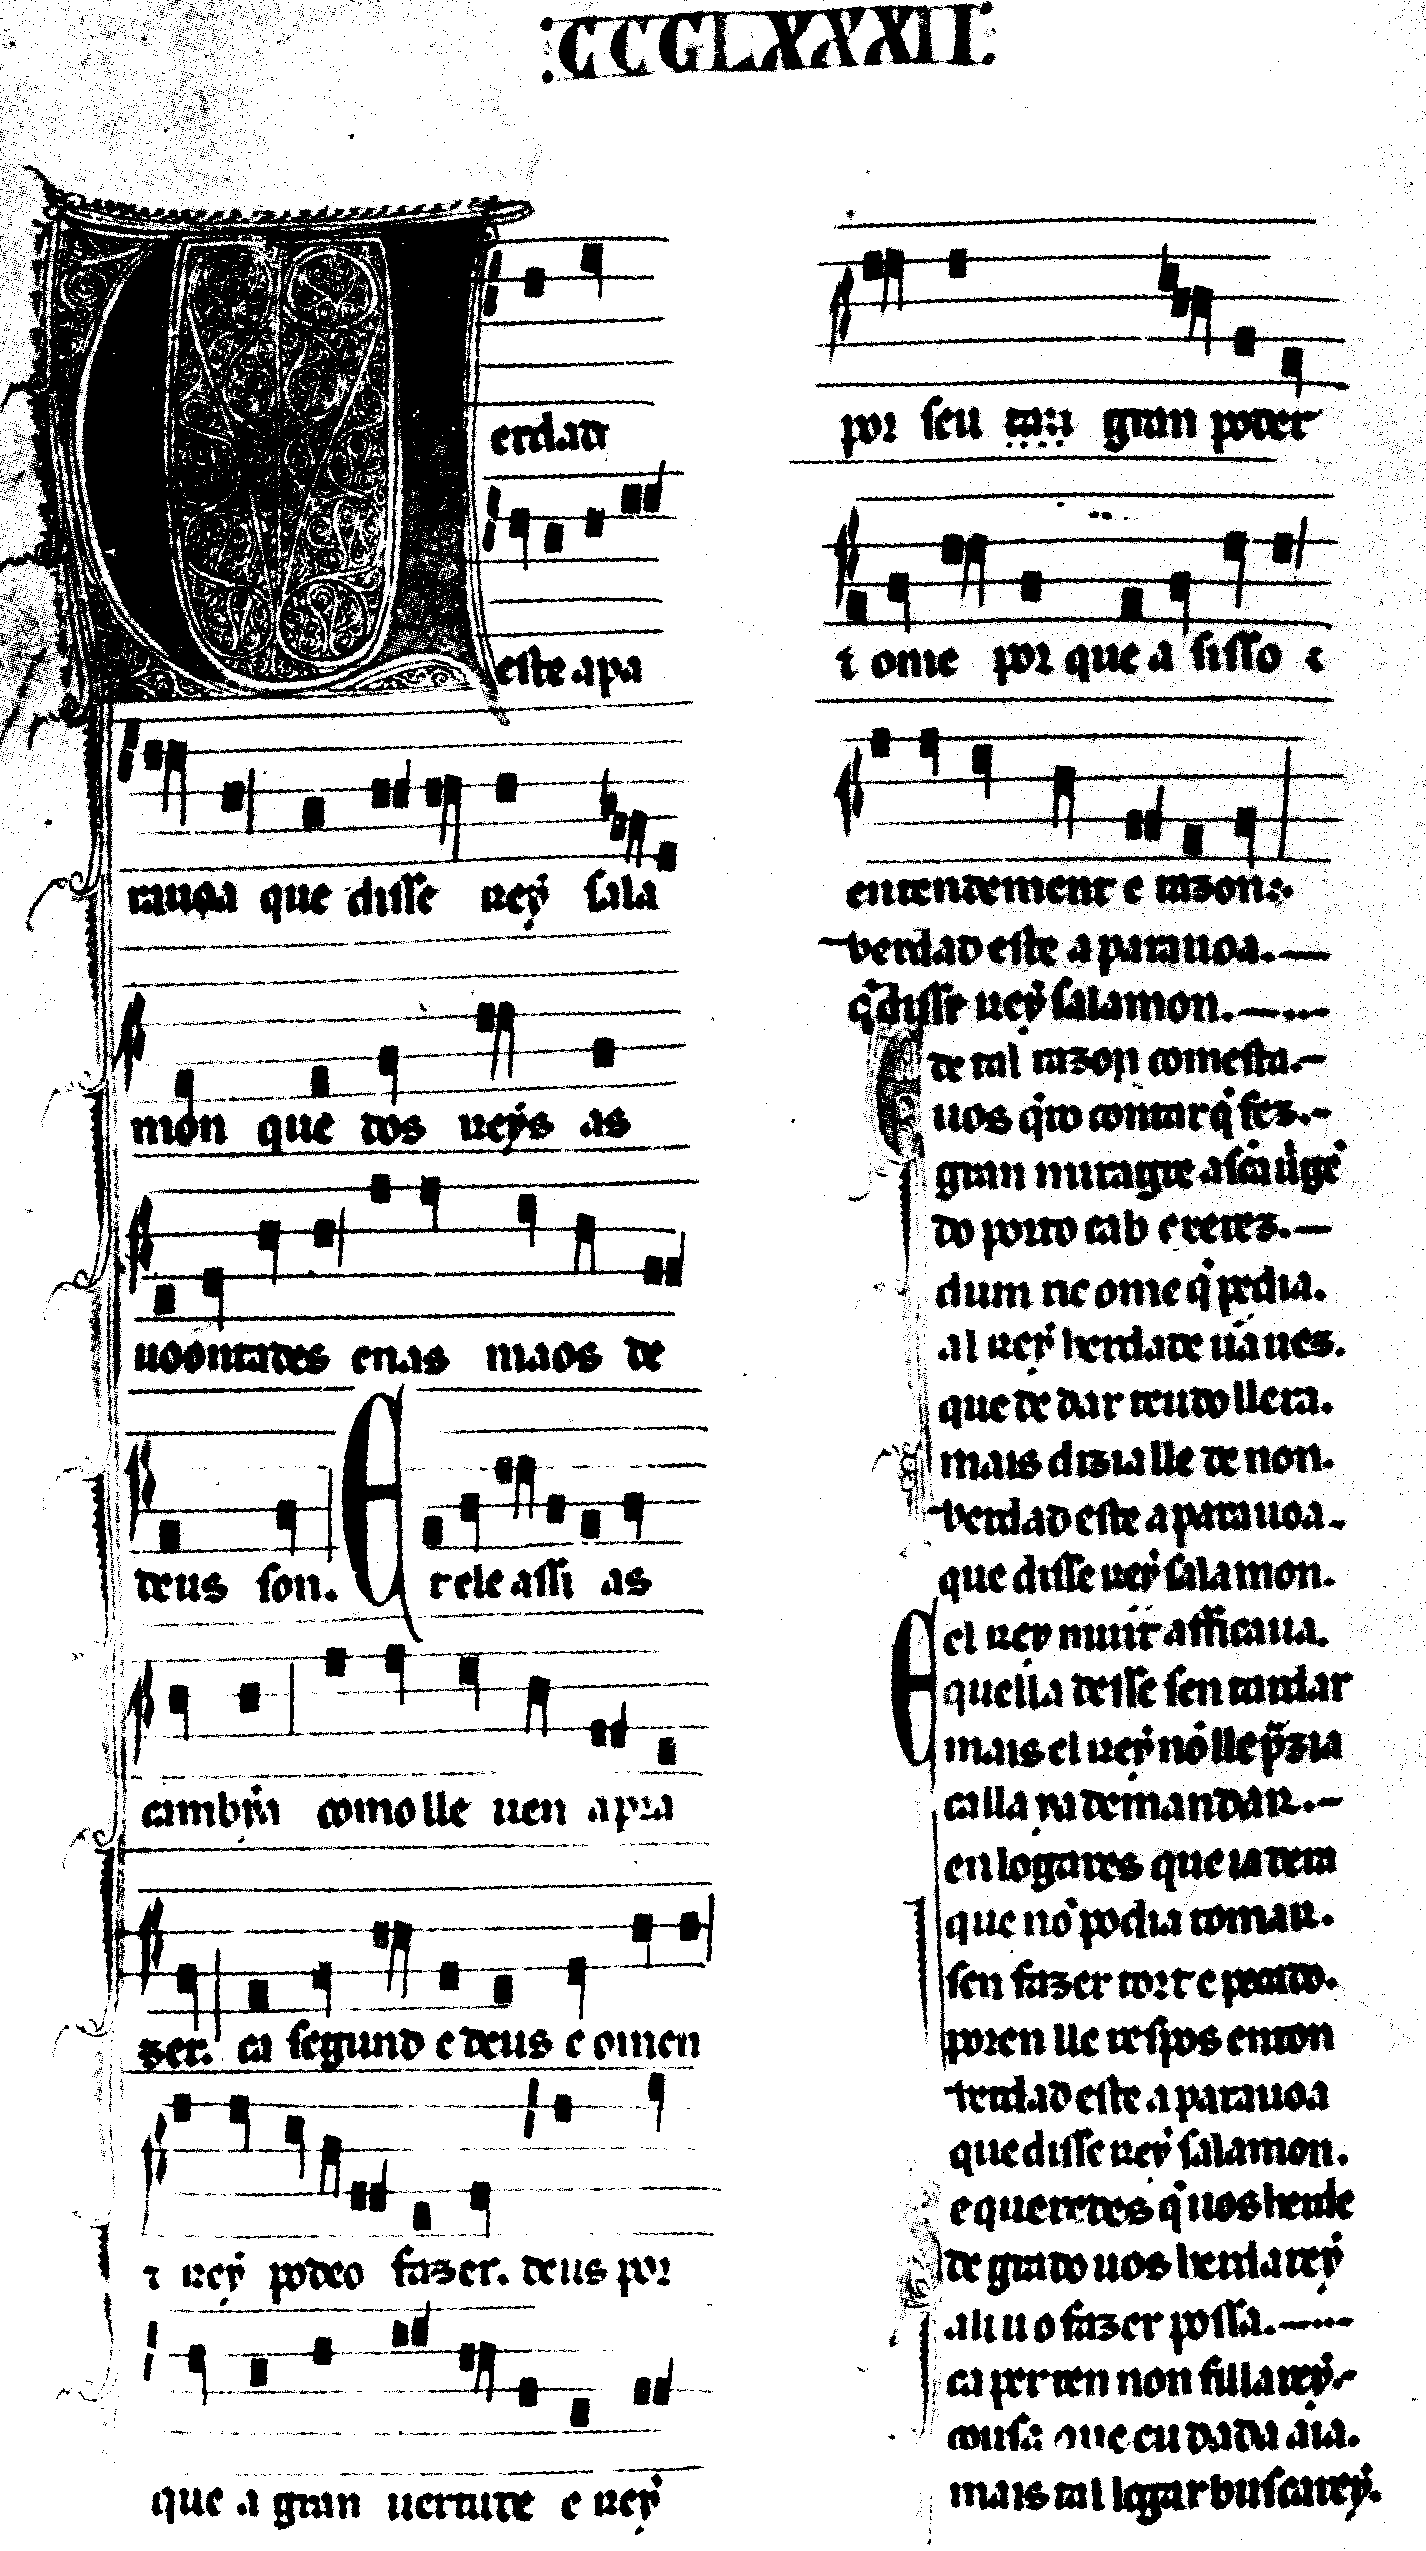 :CCCLXXXII:
Verdad
este a pa
rauoa que disse rey sala
mon que dos reys as
uoontades enas maos de
deus son. E rele assi as
cambiar como lle uen a pra
zer. ca segund e deus e omen
⁊ rey podeo fazer. deus por
que a gran uertude e rey
por seu tan gran poder
⁊ ome por que a sisso ⁊
entendement e razon:
Verdad este a parauoa.
q̇ disse rey salamon.
E de tal razon com esta.
uos q̇ro contar q̇ fez.
gran miragre a sc̃a uirgẽ
do porto cab e rerez.
dum ric ome q̇ pedia.
al rey herdade ũa uez.
que de dar teudo ll era.
mais dizialle de non.
Verdad este a parauoa.
que disse rey salamon.
E el rey muit afficaua.
quella desse sen tardar
mais el rey nõ lle p̃zia
ca lla ya demandar.
en logares que ia dera
que nõ podia tomar.
sen fazer tort e pecado.
poren lle respos enton
Verdad este a parauoa
que disse rey salamon.
e queredes q̇ uos herde
de grado uos herdarey
ali u o fazer possa.
ca per ren non fillarey
cousa que eu dada aia.
mais tal logar buscarey.